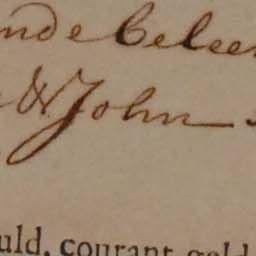 ende Celee
& John
uld, courant geld